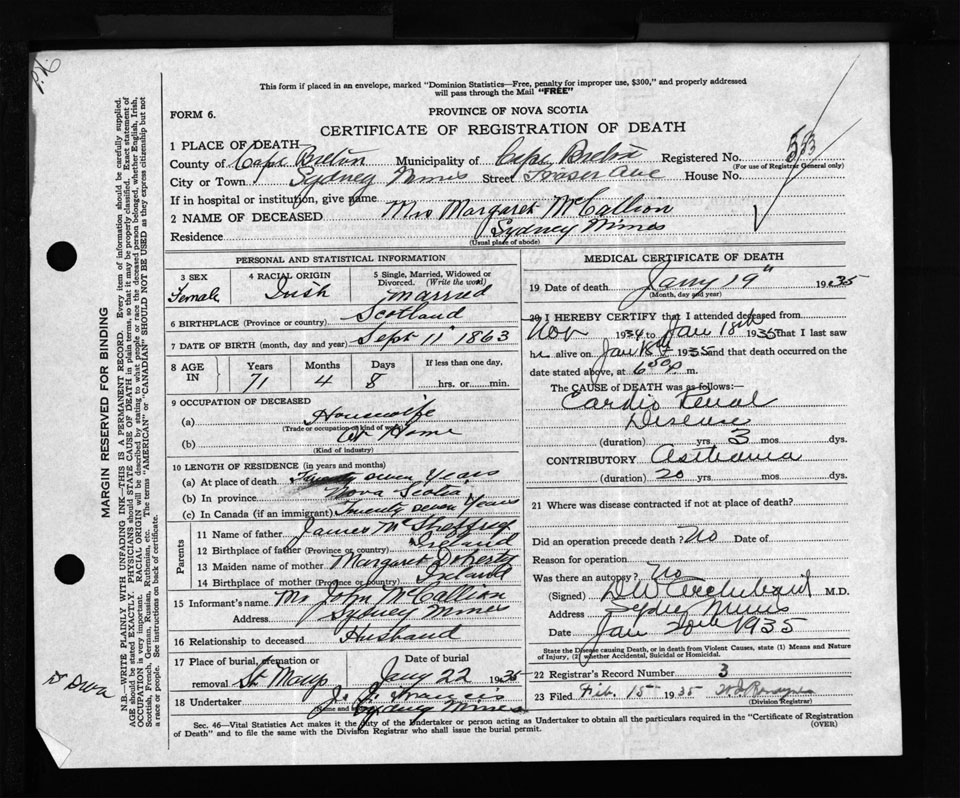 This form if placed in an envelope, marked "Dominion Statistics—Free, penalty for improper use, $300," and properly addressed
will pass through the Mail "FREE"
FORM 6.
PROVINCE OF NOVA SCOTIA
CERTIFICATE OF REGISTRATION OF DEATH
1 PLACE OF DEATH—
County of Cape Breton Municipality of Cape Breton Registered No. 53
(For use of Registrar General only)
City or Town Sydney Mines Street Fraser Ave House No.
If in hospital or institution, give name
2 NAME OF DECEASED Mrs Margaret McCallion
Residence Sydney Mines
(Usual place of abode)
PERSONAL AND STATISTICAL INFORMATION
3 SEX Female
4 RACIAL ORIGIN Irish
5 Single, Married, Widowed or Divorced. (Write the word) married
6 BIRTHPLACE (Province or country) Scotland
7 DATE OF BIRTH (month, day and year) Sept 11" 1863
8 AGE IN Years 71 Months 4 Days 8 If less than one day, hrs. or min.
9 OCCUPATION OF DECEASED
(a) Housewife
(Trade or occupation or kind of work)
(b) At Home
(Kind of industry)
10 LENGTH OF RESIDENCE (in years and months)
(a) At place of death seven Years
(b) In province Nova Scotia
(c) In Canada (if an immigrant) Twenty seven Years
Parents
11 Name of father James
12 Birthplace of father (Province or country) Ireland
13 Maiden name of mother Margaret Doherty
14 Birthplace of mother (Province or country) Ireland
15 Informant's name Mr John McCallion
Address Sydney Mines
16 Relationship to deceased Husband
17 Place of burial, cremation or removal St Marys Date of burial Jany 22 1935
18 Undertaker J. J. Francis
Sydney Mines
MEDICAL CERTIFICATE OF DEATH
19 Date of death Jany 19" 1935
(Month, day and year)
20 I HEREBY CERTIFY that I attended deceased from
Nov 1934 to Jan 18th 1935 that I last saw
h alive on Jan 18th 1935 and that death occurred on the
date stated above, at 6 m.
The CAUSE OF DEATH was as follows:—
Cardio Renal
Disease
(duration) yrs. 3 mos. dys.
CONTRIBUTORY Asthma
(duration) 20 yrs. mos. dys.
21 Where was disease contracted if not at place of death?
Did an operation precede death? No Date of
Reason for operation
Was there an autopsy? No
(Signed) DW Archibald M.D.
Address Sydney Mines
Date Jan 20th 1935
State the Disease causing Death, or in death from Violent Causes, state (1) Means and Nature
of Injury, (2) whether Accidental, Suicidal or Homicidal.
22 Registrar's Record Number 3
23 Filed Feb. 15 1935
(Division Registrar)
Sec. 46—Vital Statistics Act makes it the duty of the Undertaker or person acting as Undertaker to obtain all the particulars required in the "Certificate of Registration
of Death" and to file the same with the Division Registrar who shall issue the burial permit.
(OVER)
MARGIN RESERVED FOR BINDING
N.B.—WRITE PLAINLY WITH UNFADING INK—THIS IS A PERMANENT RECORD. Every item of information should be carefully supplied.
AGE should be stated EXACTLY. PHYSICIANS should STATE CAUSE OF DEATH in plain terms, so that it may be properly classified. Exact statement of
OCCUPATION is very important. RACIAL ORIGIN will be described by stating to what people or race the deceased person belonged, whether English, Irish,
Scottish, French, German, Russian, Ruthenian, etc. The terms "AMERICAN" or "CANADIAN" SHOULD NOT BE USED as they express citizenship but not
a race or people. See instructions on back of certificate.